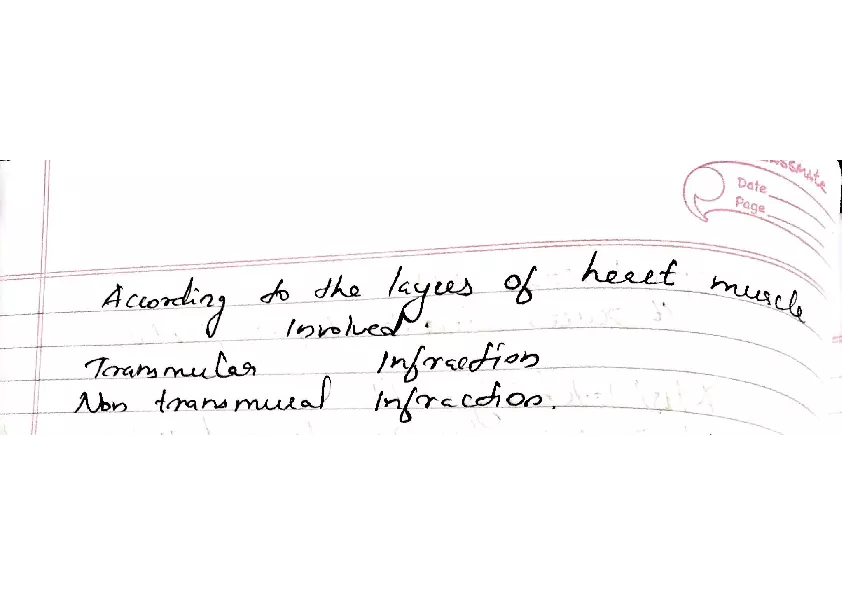 classmate
Date
Page
According to the layers of heart muscle
Involved.
Transmular Infraction
Non transmural Infraction.